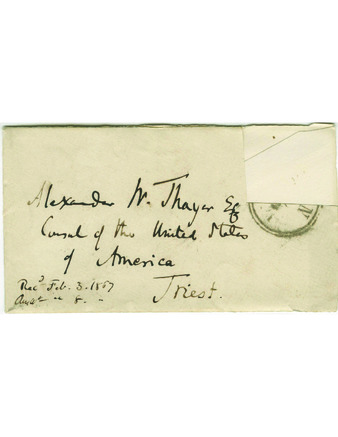 Alexander W. Thayer Esq
Consul of the United States
of America
Triest.
Recd Feb. 3. 1867
Answd " 8. "